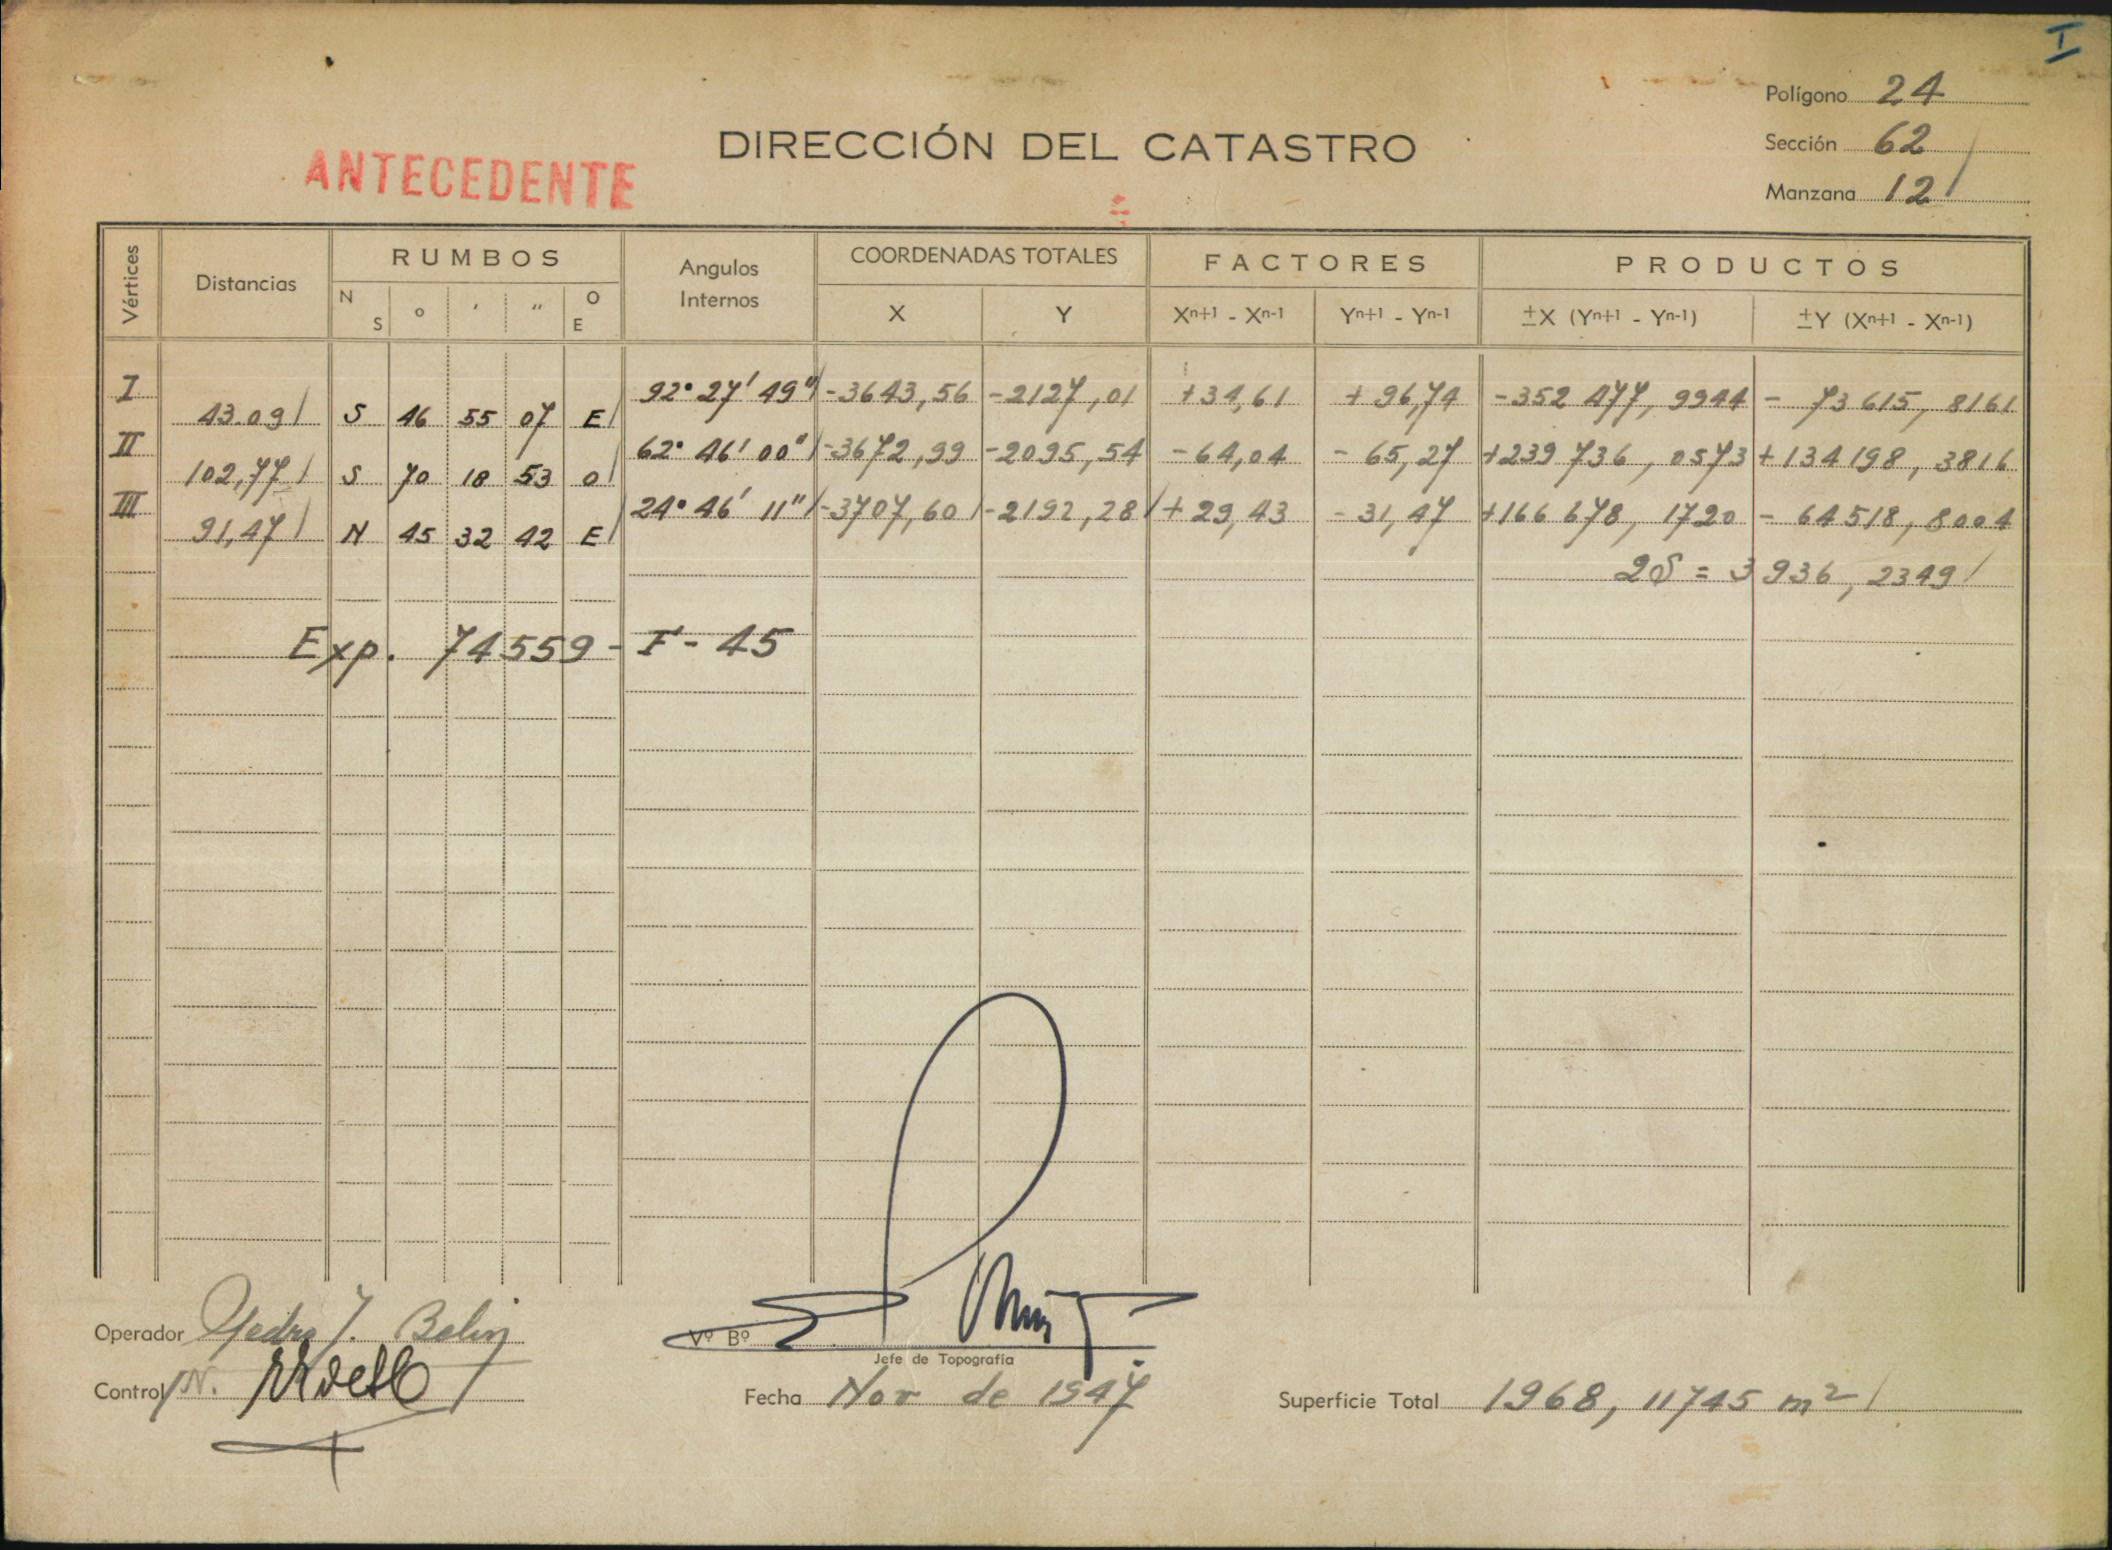 I
Polígono 24
Sección 62
Manzana 12
DIRECCIÓN DEL CATASTRO
ANTECEDENTE
Vértices Distancias RUMBOS Angulos Internos COORDENADAS TOTALES FACTORES PRODUCTOS
N S o ′ ″ O E X Y Xn+1 - Xn-1 Yn+1 - Yn-1 ±X (Yn+1 - Yn-1) ±Y (Xn+1 - Xn-1)
I 92° 27′ 49″ -3643,56 -2127,01 +34,61 +96,74 -352 477,9944 - 73615,8161
43.09 S 46 55 07 E
II 62° 46′ 00″ -3672,99 -2095,54 -64,04 - 65,27 +239 736,0573 +134198,3816
102,77 S 70 18 53 O
III 24° 46′ 11″ -3707,60 -2192,28 +29,43 -31,47 +166 678,1720 - 64518,8004
91,47 N 45 32 42 E
2S = 3936,2349
Exp. 74559 - F - 45
Operador Pedro J.
Vº Bº
Jefe de Topografía
Control N.
Fecha Nov de 1947
Superficie Total 1968,11745 m²